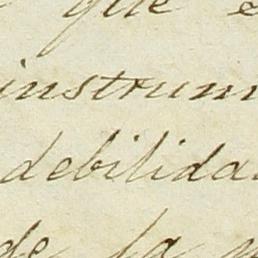 que e
instrum
debilida
de la